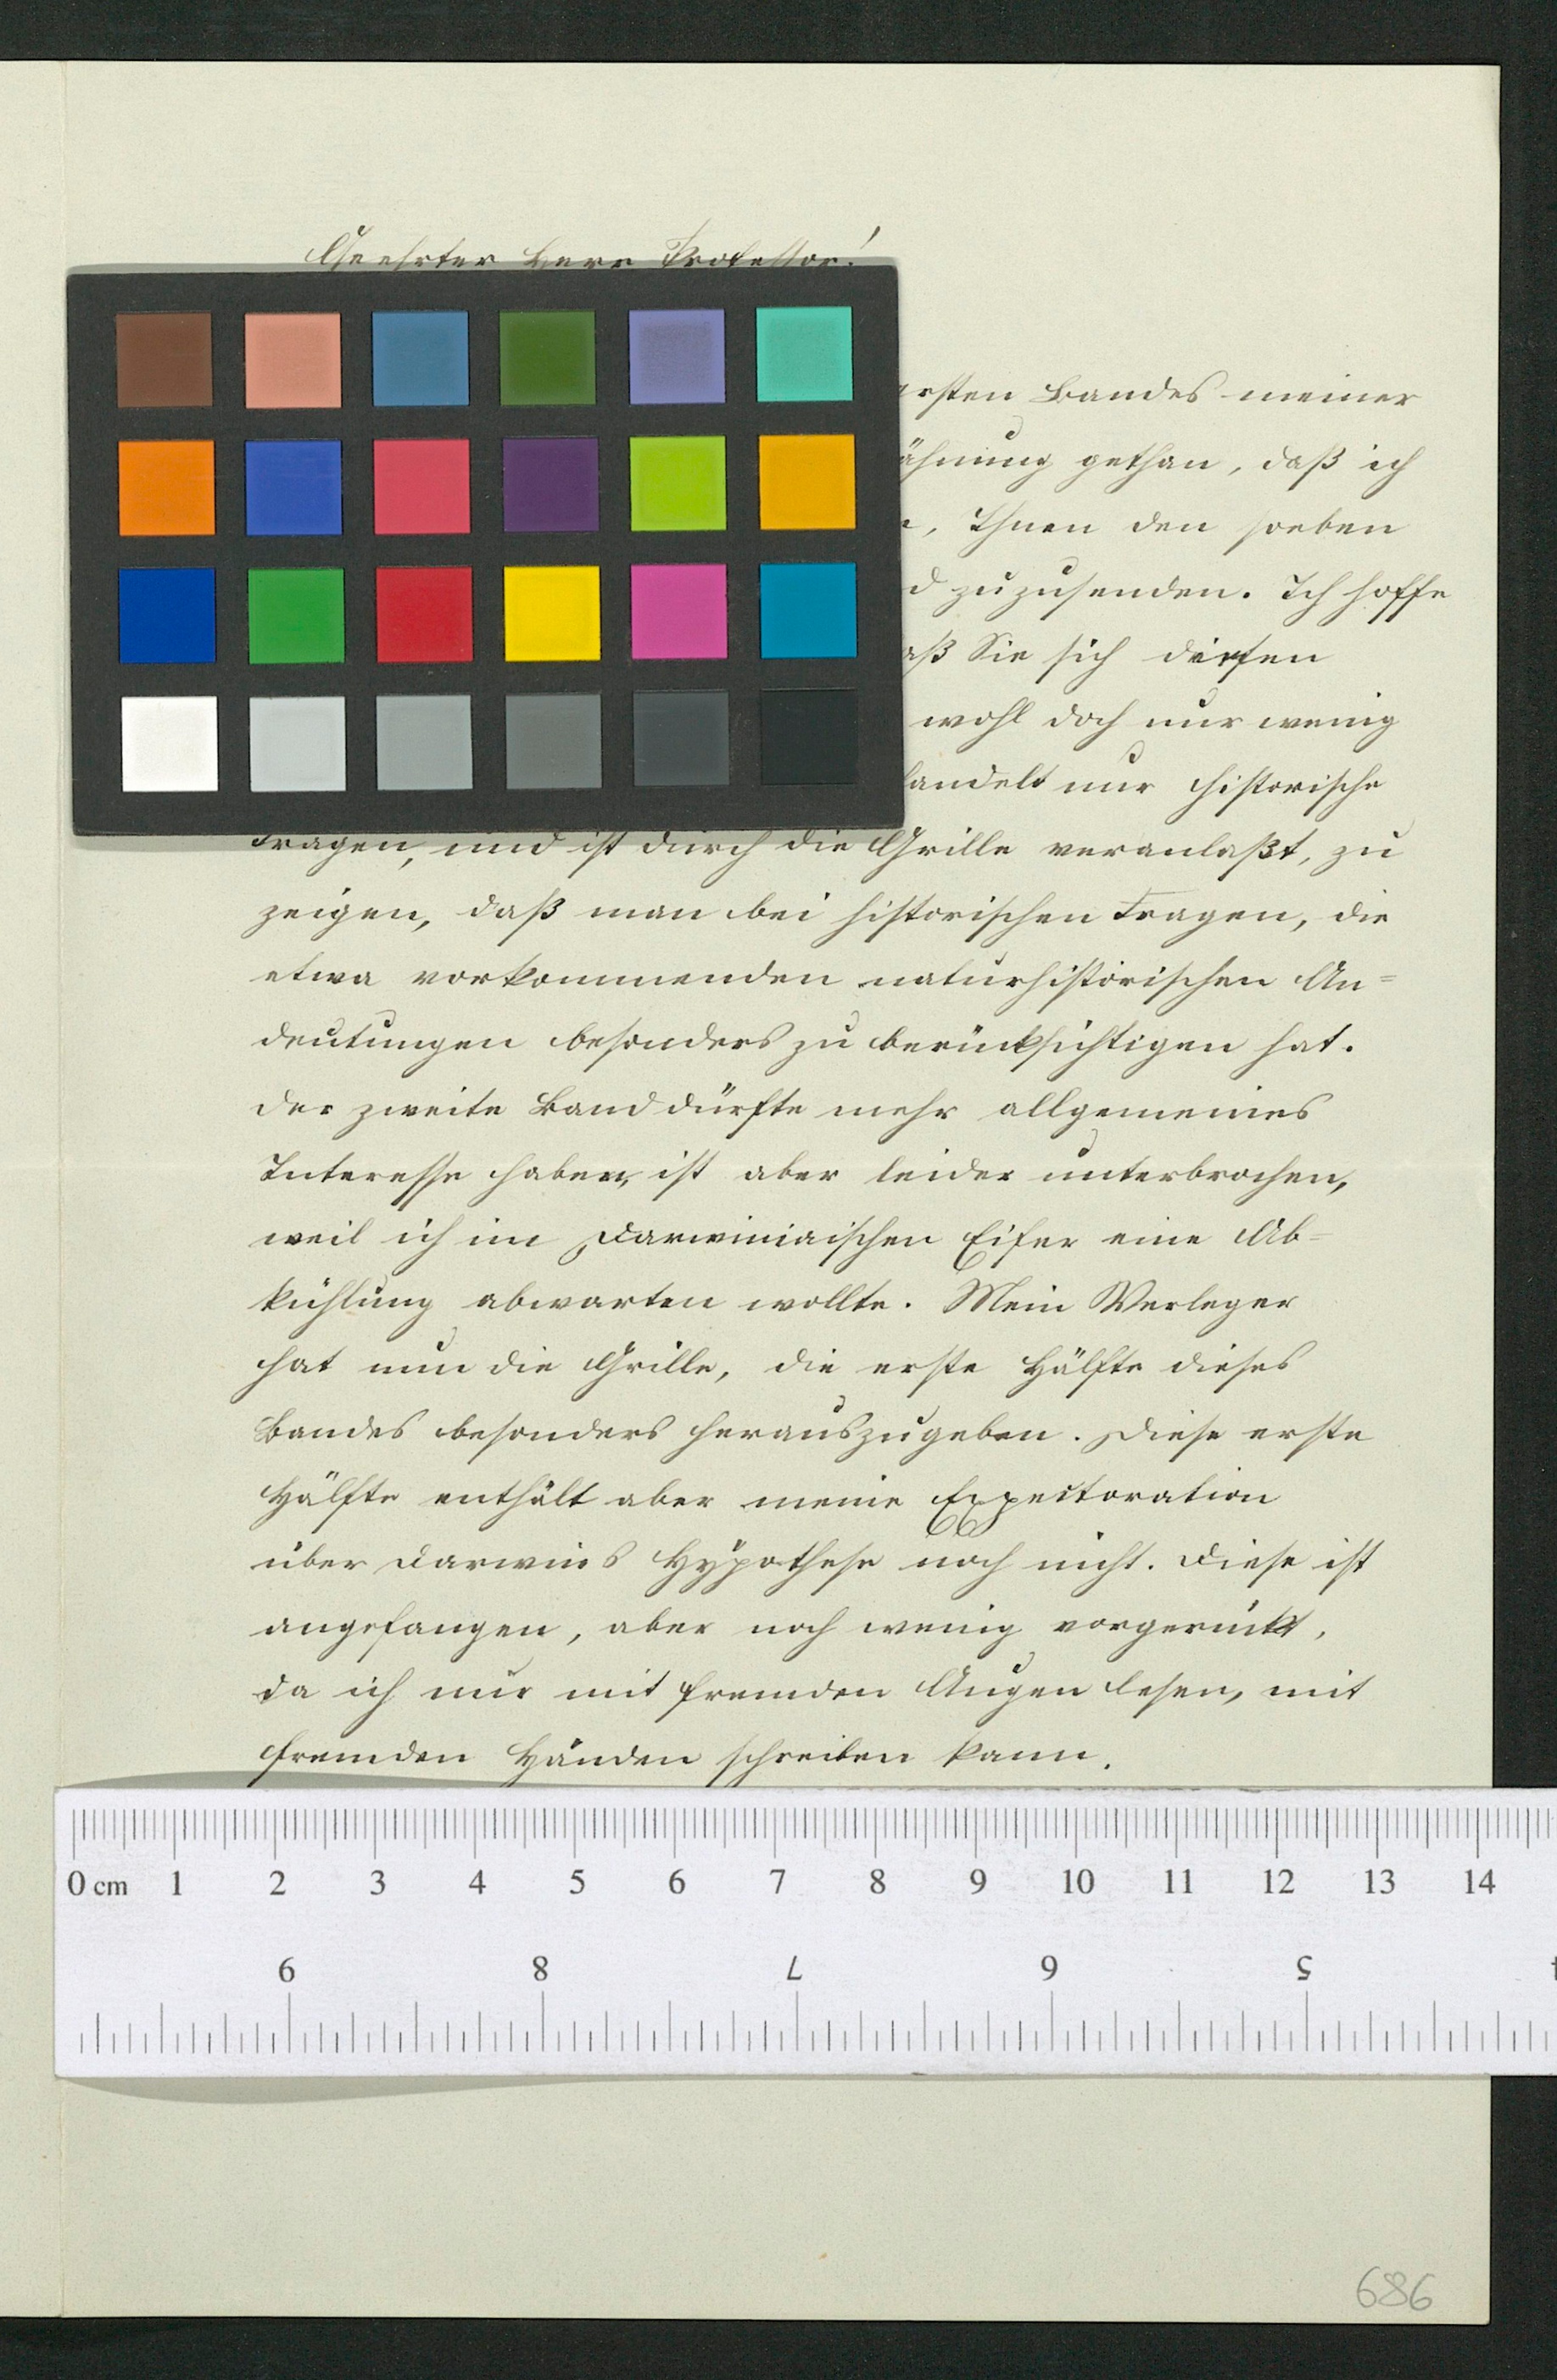 Geehrter Herr Professor!
ersten Bandes meiner
gethan, daß ich
Ihnen den soeben
zuzusenden. Ich hoffe
Sie sich diesen
wohl doch nur wenig
nur historische
Fragen, und ist durch die Grille veranlaßt, zu
zeigen, daß man bei historischen Fragen, die
etwa vorkommenden naturhistorischen An-
deutungen besonders zu berücksichtigen hat.
Der zweite Band dürfte mehr allgemeines
Interesse haben, ist aber leider unterbrochen,
weil ich im Darwiniaischen Eifer eine Ab-
kühlung abwarten wollte. Mein Verleger
hat nun die Grille, die erste Hälfte dieses
Bandes besonders herauszugeben. Diese erste
Hälfte enthält aber meine Expectoration
über Darwins Hypothese noch nicht. Diese ist
angefangen, aber noch wenig vorgerückt,
da ich nur mit fremden Augen lesen, mit
fremden Händen schreiben kann.
0 cm 1 2 3 4 5 6 7 8 9 10 11 12 13 14
9 8 7 6 5
686